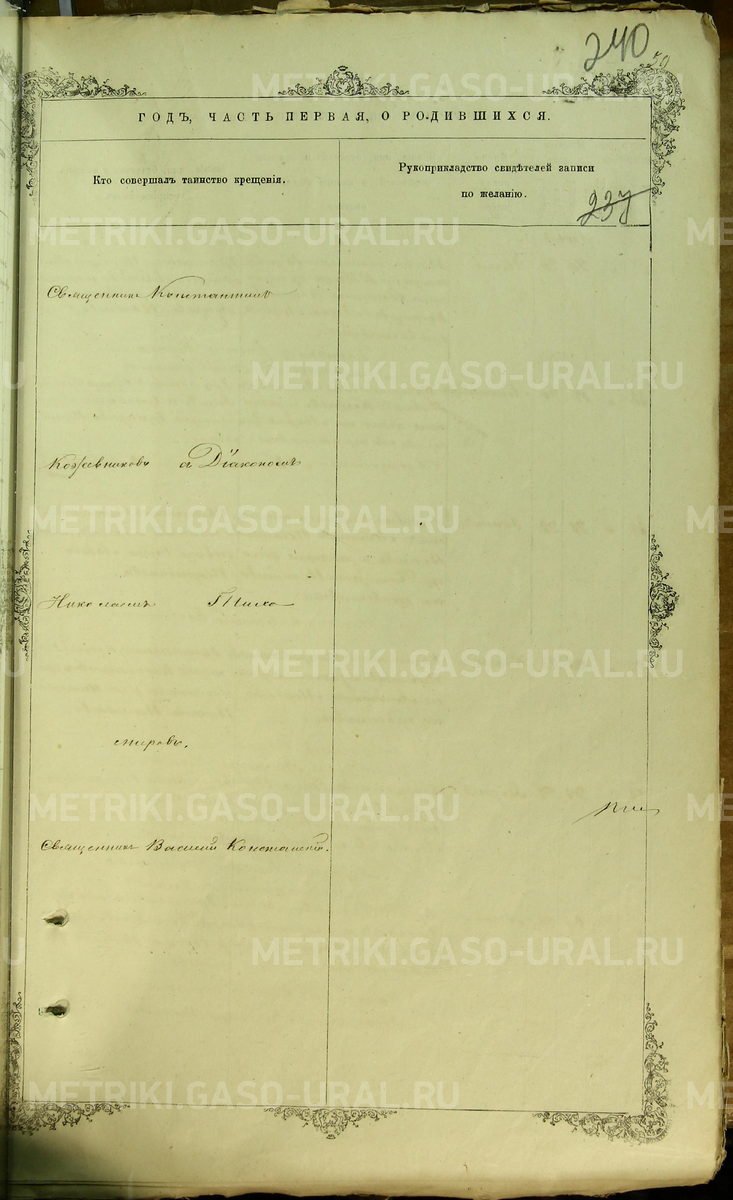 240
ГОДЪ, ЧАСТЬ ПЕРВАЯ, О РОДИВШИХСЯ.
Кто совершалъ таинство крещенія.
Рукоприкладство свидѣтелей записи
по желанію.
237
Священникъ Константинъ
Кожевниковъ съ Діакономъ
Николаемъ
стировъ.
Священникъ Василій
METRIKI.GASO-URAL.RU